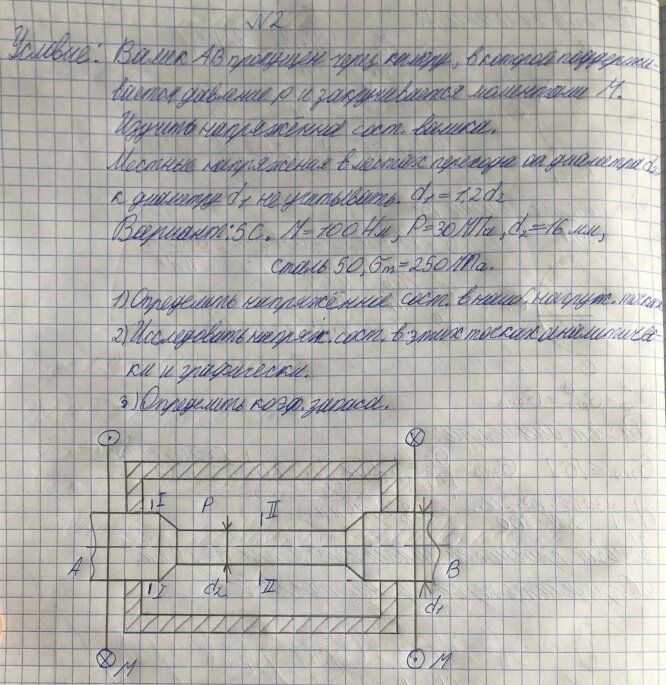 №2
Условие: Валик AB пропущен через камеру, в которой поддержи-
вается давление p и закручивается моментами M.
Изучить напряжённое сост. валика.
Местные напряжения в местах перехода от диаметра d2
к диаметру d1 не учитывать. d1 = 1,2d2
Вариант: 5С. M = 100 Нм, P = 30 МПа, d2 = 16 мм,
сталь 50, σт = 250 МПа.
1) Определить напряжённое сост. в наиб. нагруж. точках
2) Исследовать напряж. сост. в этих точках аналитичес-
ки и графически.
3) Определить коэф. запаса.
I P II
A d2 B
I II d1
M M